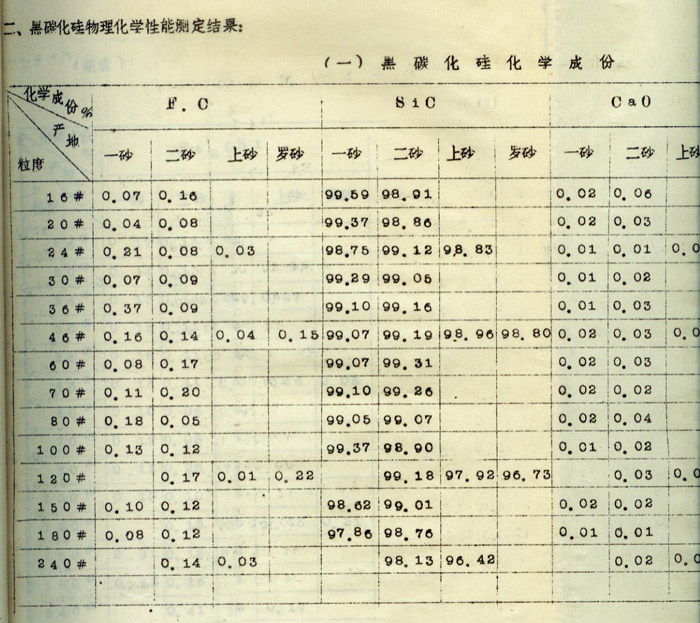 二、黑碳化硅物理化学性能测定结果:
(一) 黑碳化硅化学成份
化学成份% F.C SiC CaO
产地
粒度 一砂 二砂 上砂 罗砂 一砂 二砂 上砂 罗砂 一砂 二砂
16# 0.07 0.16 99.59 98.91 0.02 0.06
20# 0.04 0.08 99.37 98.86 0.02 0.03
24# 0.21 0.08 0.03 98.75 99.12 98.83 0.01 0.01
30# 0.07 0.09 99.29 99.05 0.01 0.02
36# 0.37 0.09 99.10 99.16 0.01 0.03
46# 0.16 0.14 0.04 0.15 99.07 99.19 98.96 98.80 0.02 0.03
60# 0.08 0.17 99.07 99.31 0.02 0.03
70# 0.11 0.20 99.10 99.26 0.02 0.02
80# 0.18 0.05 99.05 99.07 0.02 0.04
100# 0.13 0.12 99.37 98.90 0.01 0.02
120# 0.17 0.01 0.22 99.18 97.92 96.73 0.03
150# 0.10 0.12 98.62 99.01 0.02 0.02
180# 0.08 0.12 97.86 98.76 0.01 0.01
240# 0.14 0.03 98.13 96.42 0.02